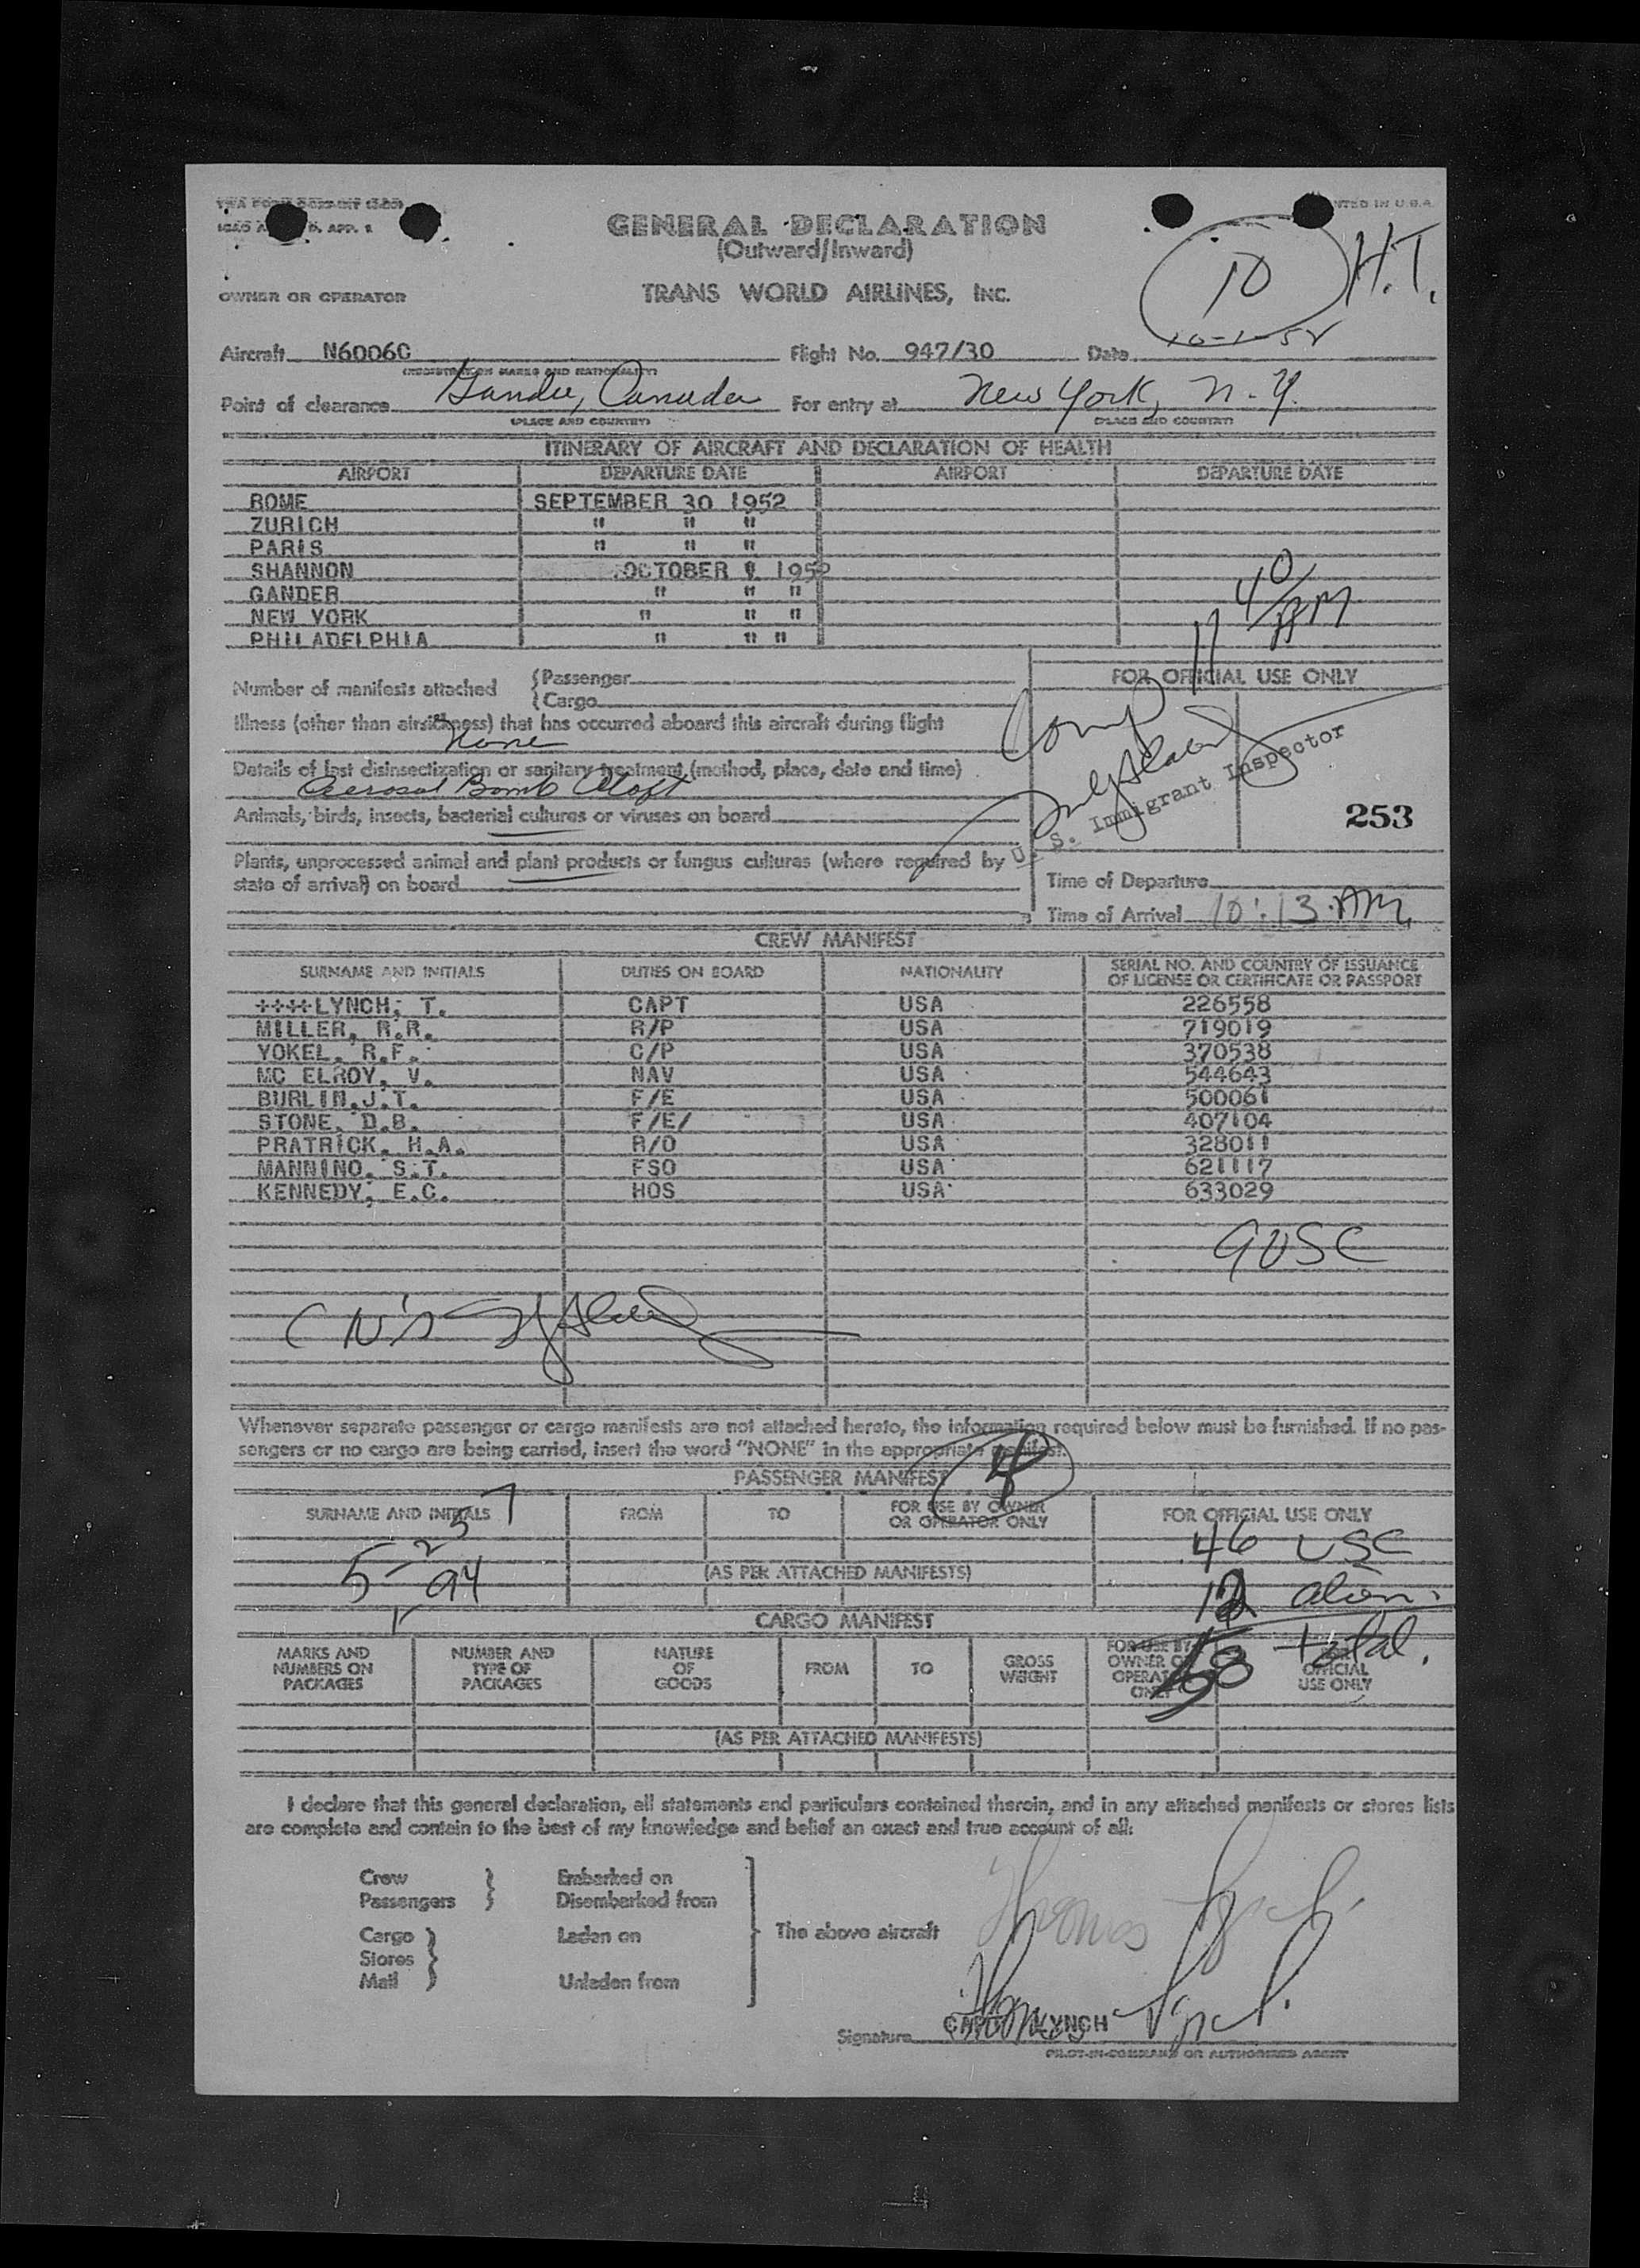 GENERAL DECLARATION
(Outward/Inward)
TRANS WORLD AIRLINES, INC.
OWNER OR OPERATOR
10 H.T.
10-1-52
Aircraft N6006C Flight No. 947/30 Date
(REGISTRATION MARKS AND NATIONALITY)
Point of clearance Gander, Canada For entry at New York, N.Y.
(PLACE AND COUNTRY) (PLACE AND COUNTRY)
ITINERARY OF AIRCRAFT AND DECLARATION OF HEALTH
AIRPORT DEPARTURE DATE AIRPORT DEPARTURE DATE
ROME SEPTEMBER 30 1952
ZURICH " " "
PARIS " " "
SHANNON OCTOBER 1 1952
GANDER " " "
NEW YORK " " "
PHILADELPHIA " " "
11 40
Number of manifests attached {Passenger
{Cargo
FOR OFFICIAL USE ONLY
Illness (other than airsickness) that has occurred aboard this aircraft during flight
None
Details of last disinsectization or sanitary treatment (method, place, date and time)
Aerosol Bomb Aloft
Animals, birds, insects, bacterial cultures or viruses on board
Plants, unprocessed animal and plant products or fungus cultures (where required by
state of arrival) on board
U. S. Immigrant Inspector
253
Time of Departure
Time of Arrival 10:13 AM
CREW MANIFEST
SURNAME AND INITIALS DUTIES ON BOARD NATIONALITY SERIAL NO. AND COUNTRY OF ISSUANCE OF LICENSE OR CERTIFICATE OR PASSPORT
LYNCH, T. CAPT USA 226558
MILLER, R.R. R/P USA 719019
YOKEL, R.F. C/P USA 370538
MC ELROY, V. NAV USA 544643
BURLIN, J.T. F/E USA 500061
STONE, D.B. F/E/ USA 407104
PRATRICK, H.A. R/O USA 328011
MANNINO, S.T. FSO USA 621117
KENNEDY, E.C. HOS USA 633029
9 USC
Whenever separate passenger or cargo manifests are not attached hereto, the information required below must be furnished. If no pas-
sengers or no cargo are being carried, insert the word "NONE" in the appropriate manifest.
4
PASSENGER MANIFEST
SURNAME AND INITIALS FROM TO FOR USE BY OWNER OR OPERATOR ONLY FOR OFFICIAL USE ONLY
46 USC
(AS PER ATTACHED MANIFESTS)
12 alien
58 total.
CARGO MANIFEST
MARKS AND NUMBERS ON PACKAGES NUMBER AND TYPE OF PACKAGES NATURE OF GOODS FROM TO GROSS WEIGHT FOR USE BY OWNER OR OPERATOR ONLY FOR OFFICIAL USE ONLY
(AS PER ATTACHED MANIFESTS)
I declare that this general declaration, all statements and particulars contained therein, and in any attached manifests or stores lists
are complete and contain to the best of my knowledge and belief an exact and true account of all:
Crew } Embarked on
Passengers } Disembarked from
Cargo } Laden on The above aircraft
Stores
Mail } Unladen from
Thomas Lynch
Thomas Lynch
Signature CAPT LYNCH
PILOT-IN-COMMAND OR AUTHORIZED AGENT